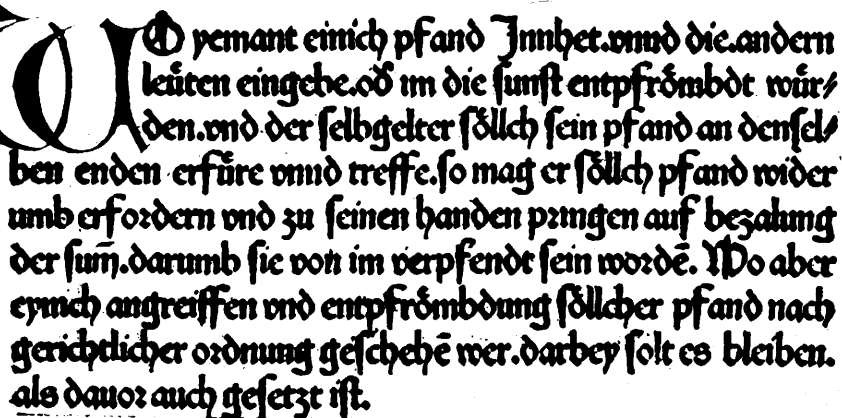 WO yemant einich pfand Innhet.vnnd die.andern
leüten eingebe.oď im die sunst entpfrömbdt wür⸗
den.vnd der selbgelter söllch sein pfand an densel⸗
ben enden erfüre vnnd treffe.so mag er söllch pfand wider
umb erfordern vnd zu seinen handen pringen auf bezalung
der sum̄.darumb sie von im verpfendt sein wordē. Wo aber
eynich angreiffen vnd entpfrömbdung söllcher pfand nach
gerichtlicher ordnung geschehē wer.darbey solt es bleiben.
als dauor auch gesetzt ist.